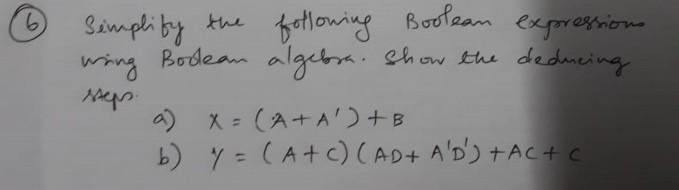 6 Simplify the following Boolean expressions
using Boolean algebra. Show the deducing
steps.
a) X = (A + A') + B
b) Y = (A + C) (AD + A'D') + AC + C